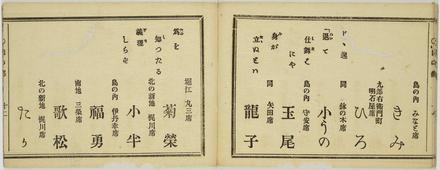 島の内 みなと席
きみ
九郎右衛門町
明石屋席
ひろ
ドヽ逸
同 鉢の木席
小うの
「退て
仕舞ふ
にや
島の内 守安席
玉尾
身が
立ぬといふ
同 矢田席
龍子
堀江 丸三席
菊榮
爲を
知つたる
義理
しらず
北の新地 梶川席
小半
島の内 伊丹幸席
福勇
南地 三榮席
歌松
北の新地 梶川席